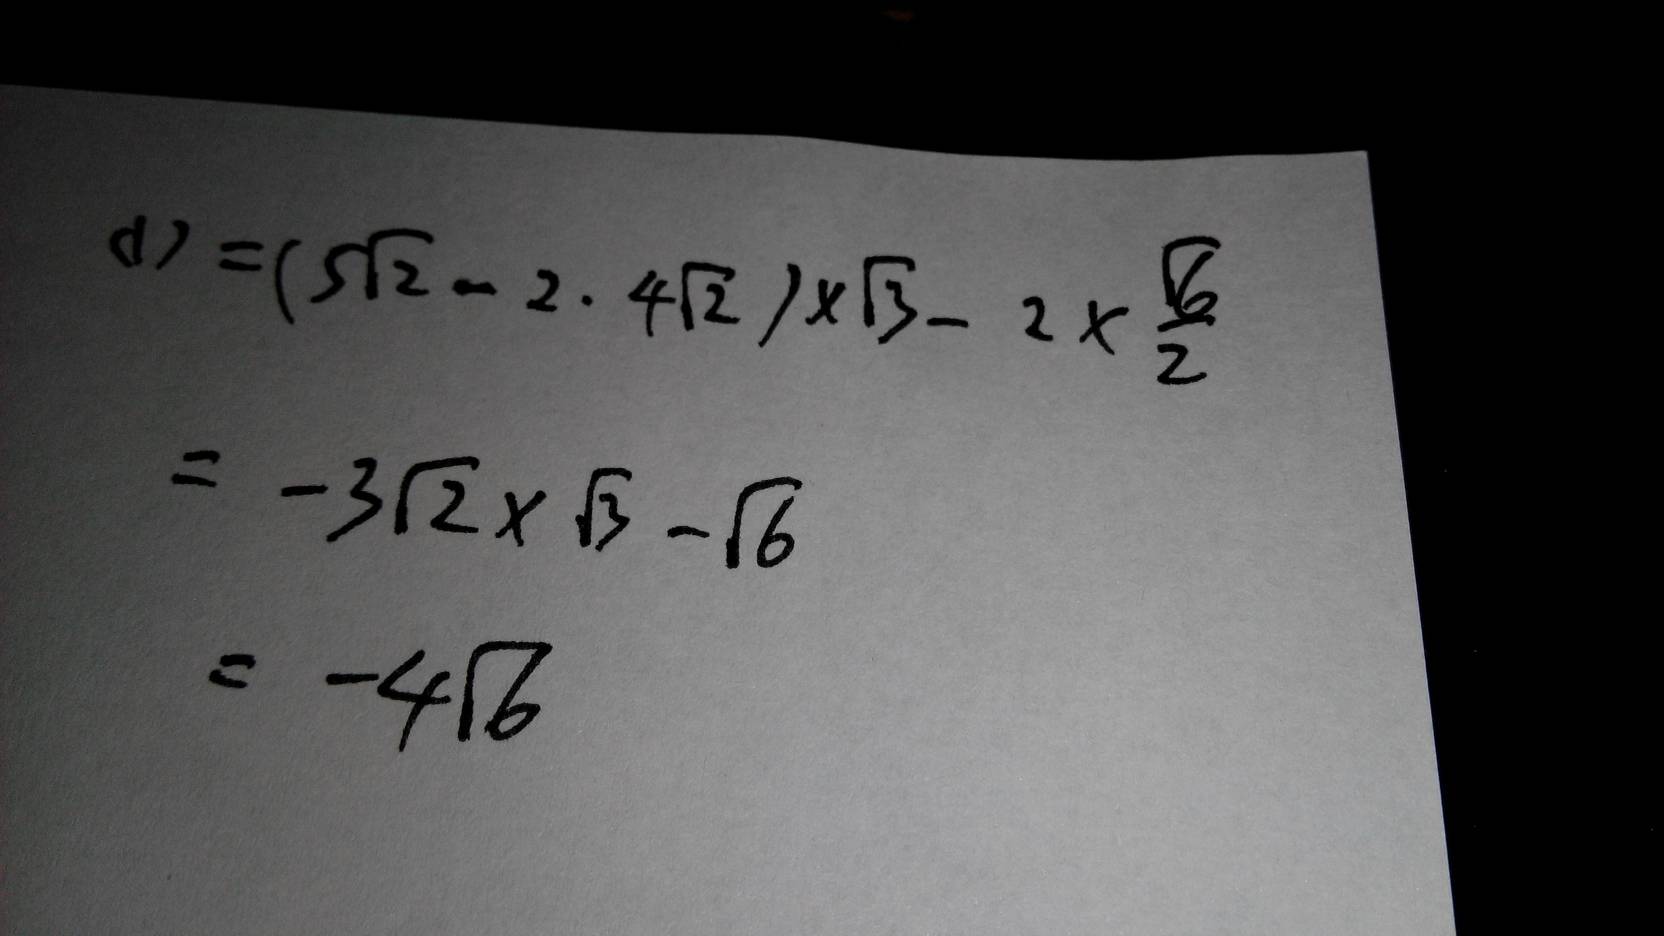 d) = (5√2 - 2 · 4√2) × √3 - 2 × √6/2
= -3√2 × √3 - √6
= -4√6